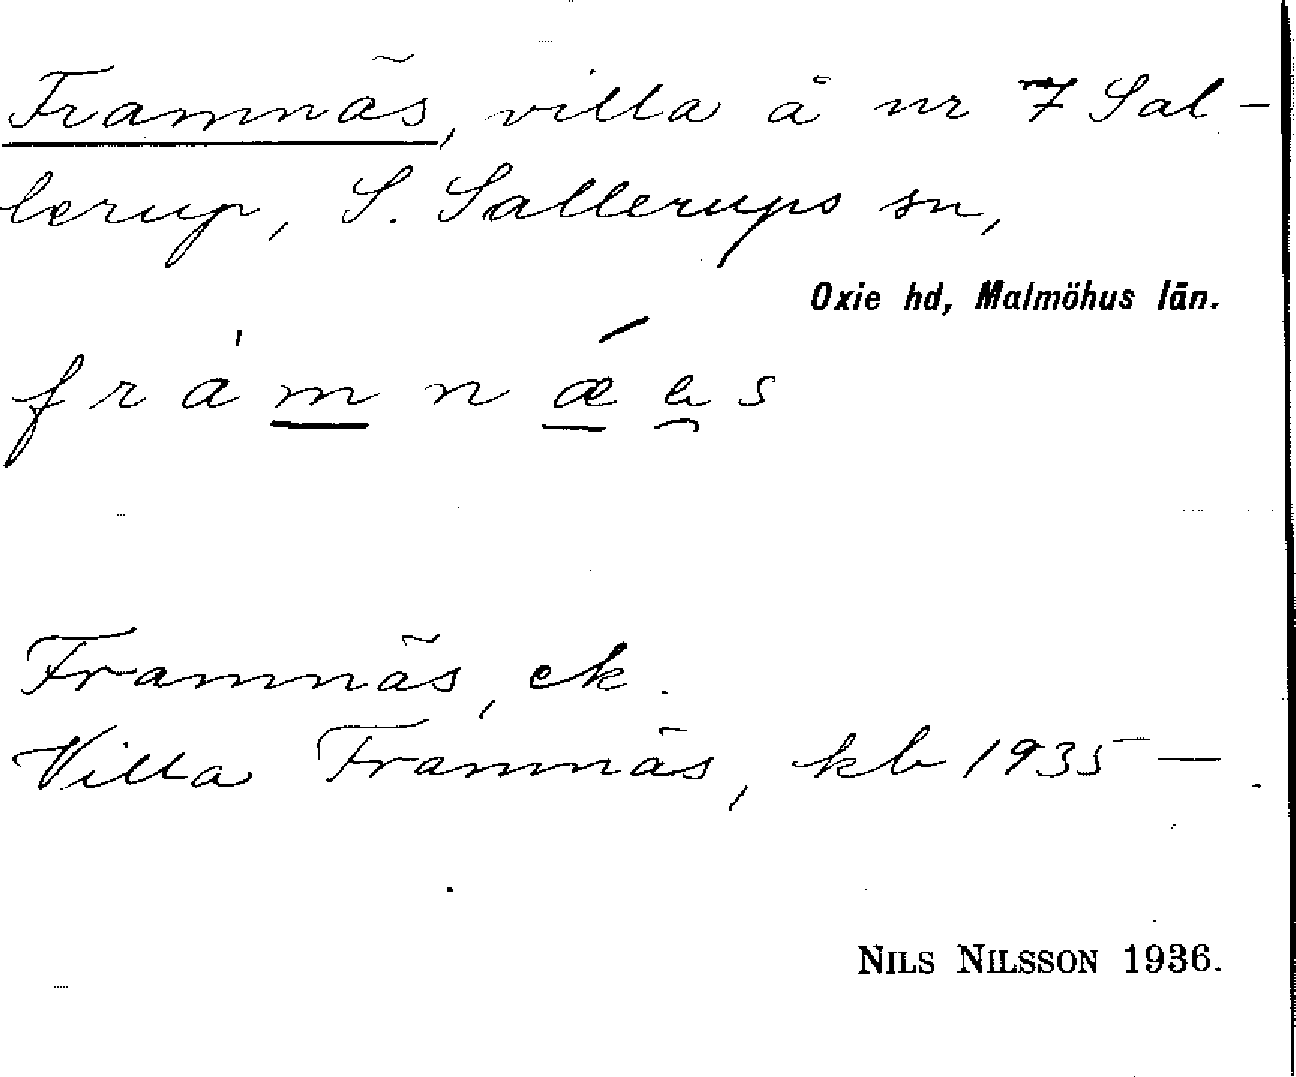 Framnäs, villa å nr 7 Sal-
lerup, S. Sallerups sn,
Oxie hd, Malmöhus län.
Framnäs, ek.
Villa Framnäs, kb 1935 —.
NILS NILSSON 1936.